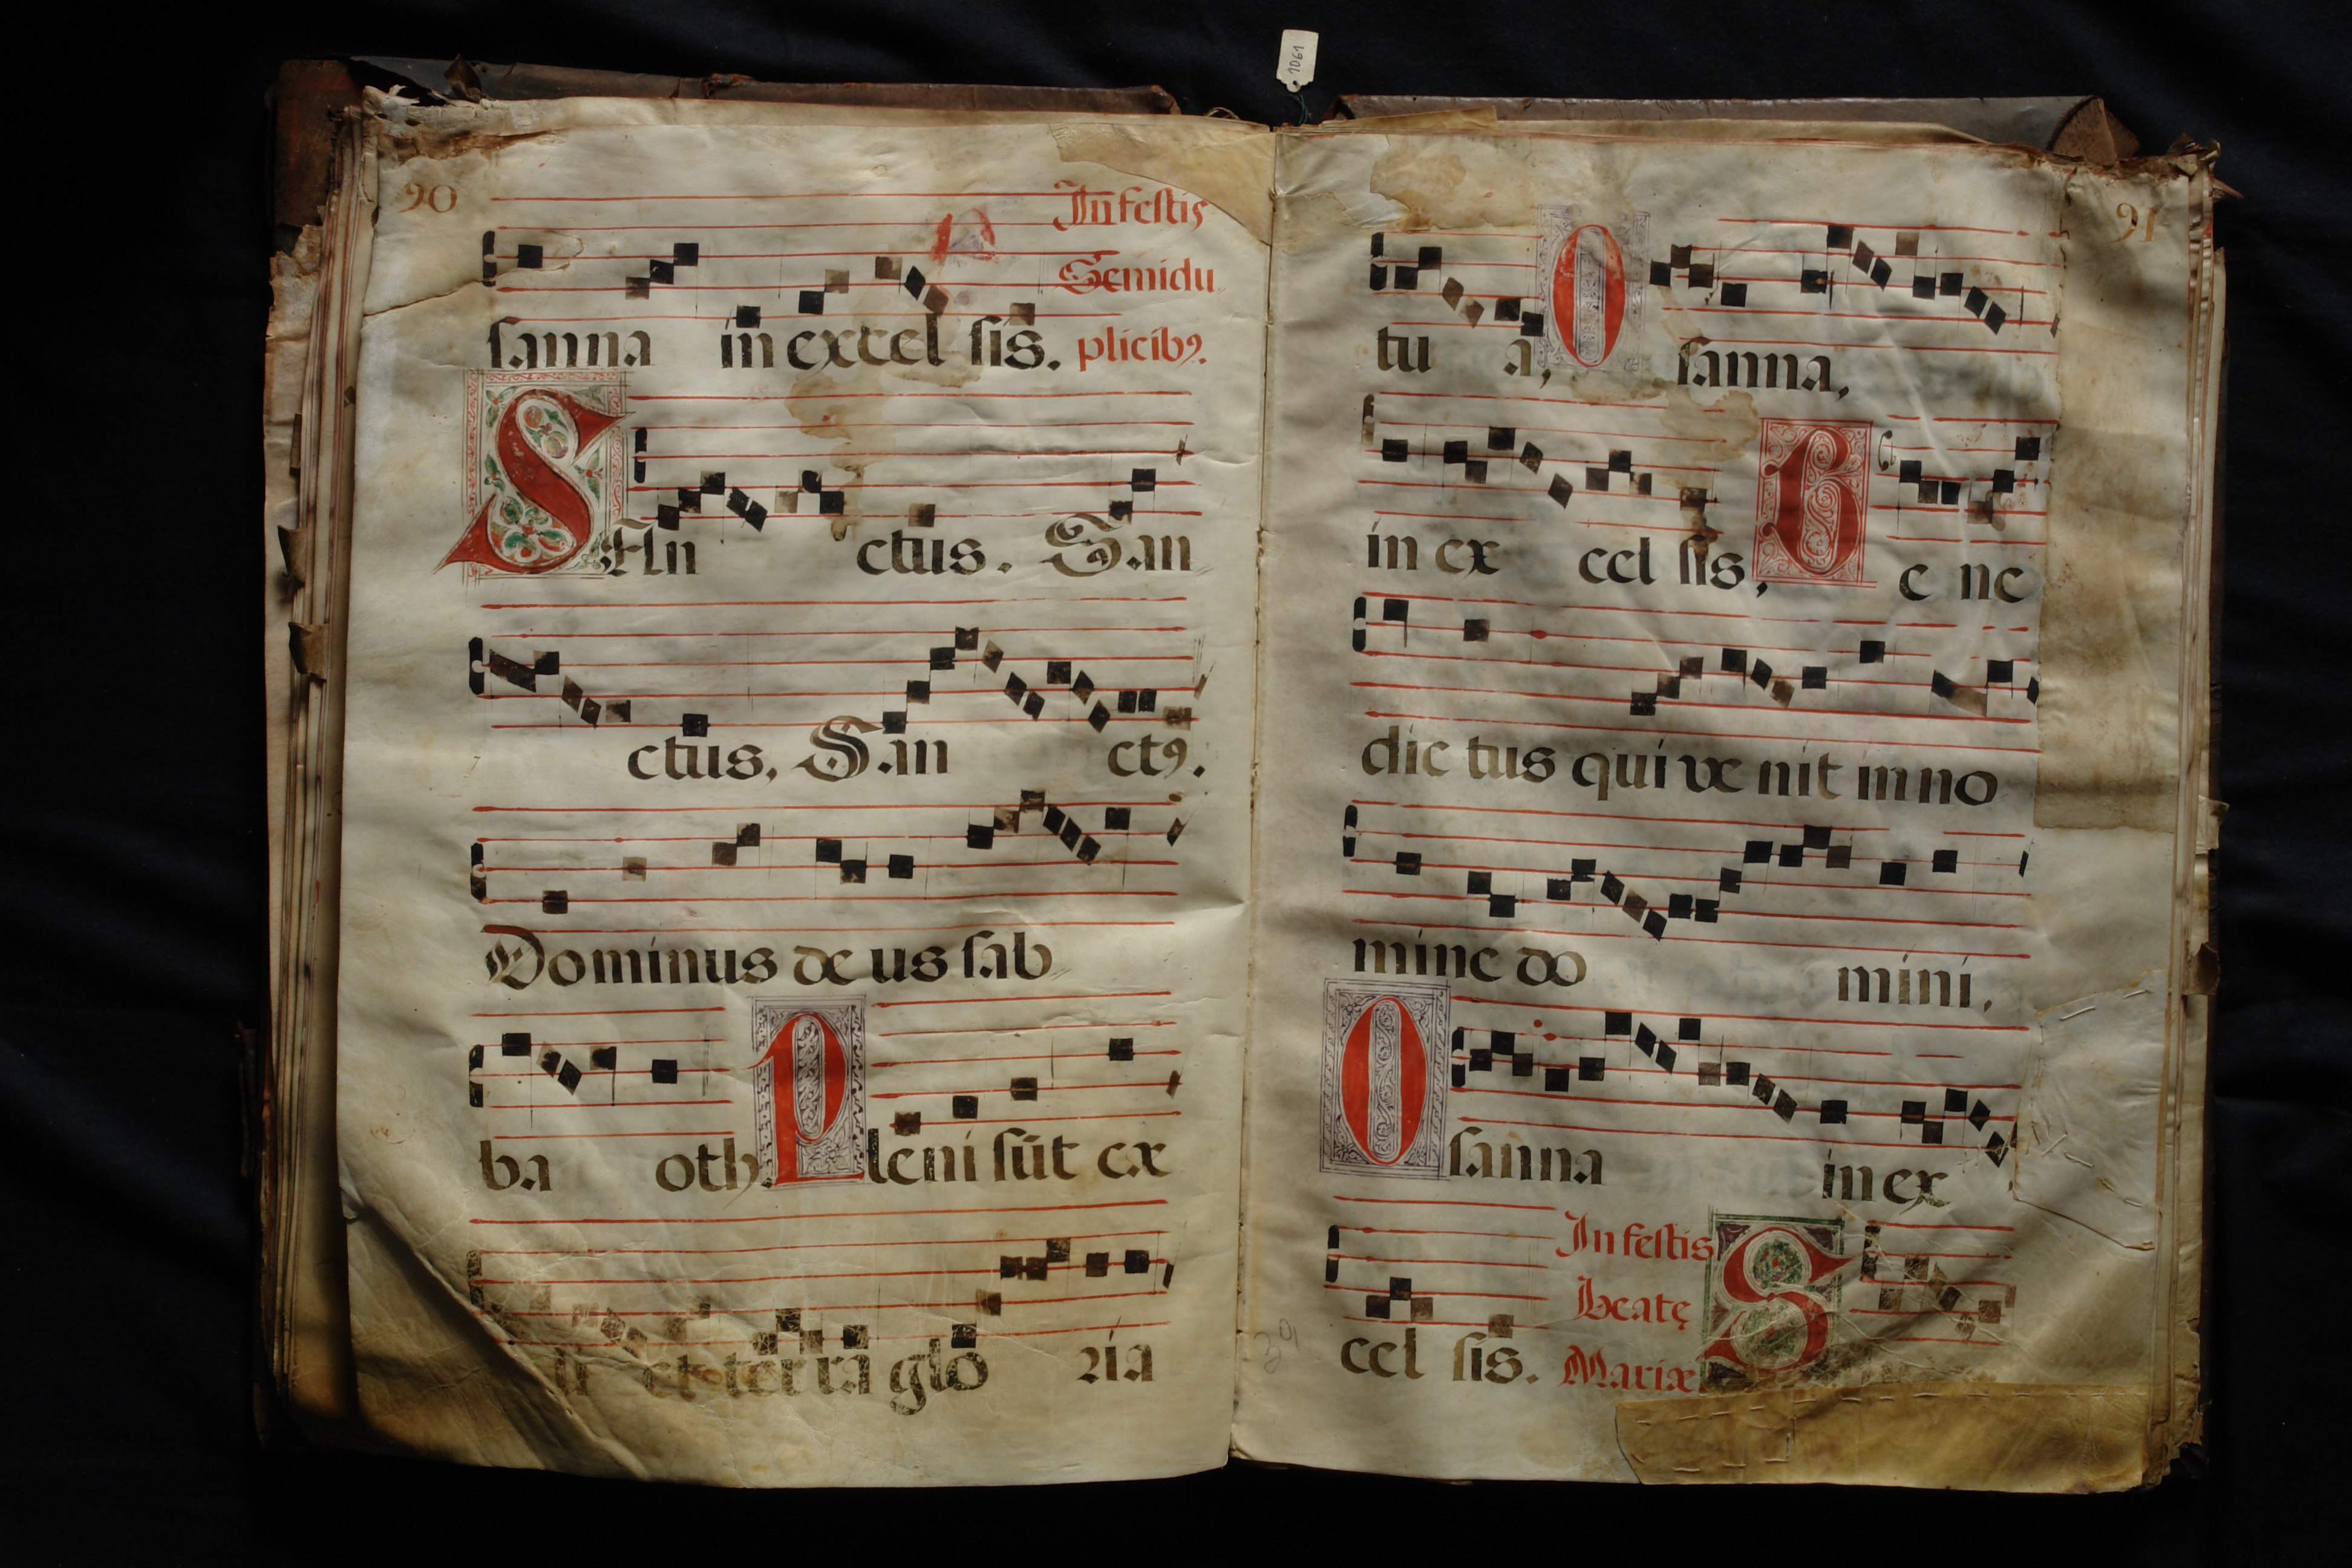 1061
90
In festis
Semidu
sanna in excel sis. plicibꝯ.
SAn ctus. San
ctus, San ctꝯ.
Dominus de us sab
ba oth. Pleni sūt cæ
li et ter ra glo ria
91
tu a, O sanna,
in ex cel sis, Be ne
dic tus qui ve nit in no
mine do mini,
O sanna in ex
In festis
Beatę
cel sis. Mariæ. S
39